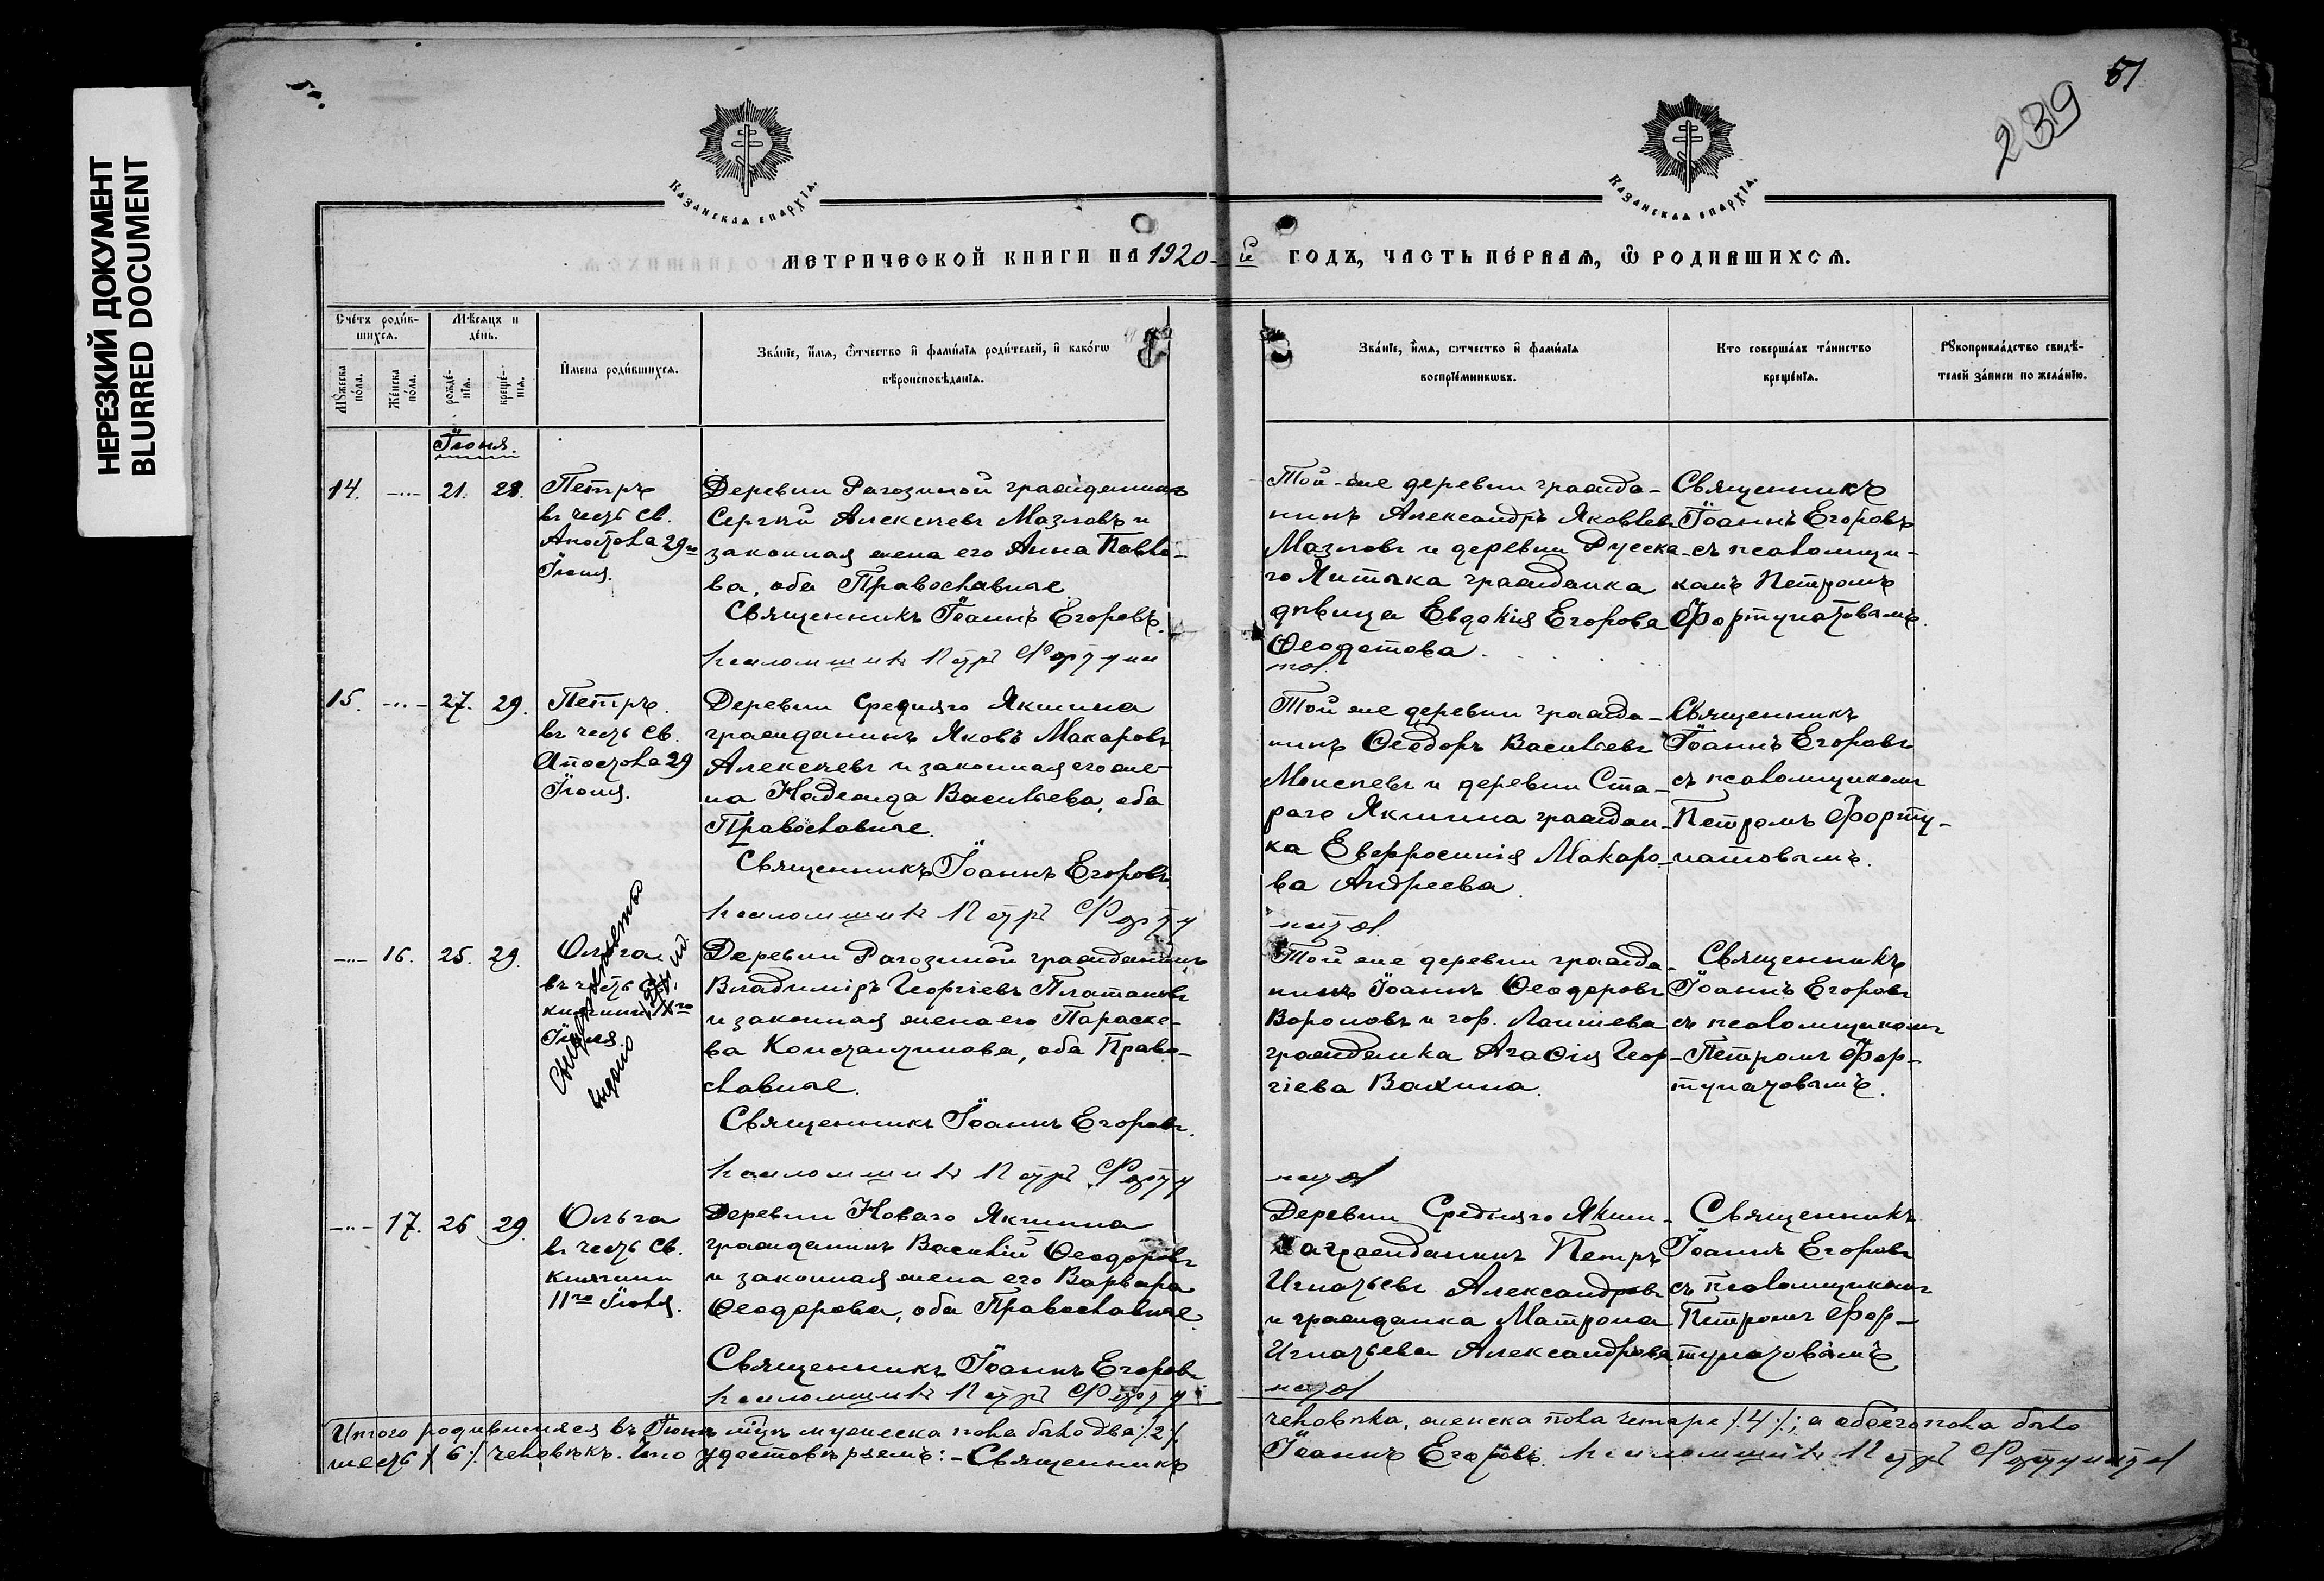 НЕРЕЗКИЙ ДОКУМЕНТ
BLURRED DOCUMENT
51
239
Казанская епархїѧ.
Казанская епархїѧ.
МЕТРИЧЕСКОЙ КНИГИ НА 1920-й ГОДЪ, ЧАСТЬ ПЕ́РВАѦ, Ѡ РОДИВШИХСѦ.
Сче́тъ роди́в-
шихсѧ.
Мѣ́сѧцъ и
де́нь.
Мꙋ́жеска
по́ла.
Же́нска
по́ла.
рожде́-
нїѧ.
креще́-
нїѧ.
И҆мена роди́вшихсѧ.
Зва́нїе, и҆́мѧ, ѻ҆́тчество и҆ фами́лїѧ роди́телей, и҆ како́гѡ
вѣроисповѣ́данїѧ.
Зва́нїе, и҆́мѧ, ѻ҆́тчество и҆ фами́лїѧ
воспрїе́мникѡвъ.
Кто соверша́лъ та́инство
креще́нїѧ.
Рꙋкоприкла́дство свидѣ́-
телей за́писи по жела́нїю.
Іюня.
14. -..- 21. 28.
Петръ
въ честь св.
Апостола 29го
Іюня.
Деревни Рагозиной гражданинъ
Сергѣй Алексѣевъ Мазловъ и
законная жена его Анна Павло-
ва, оба Православные.
Священникъ Іоаннъ Егоровъ.
псаломщикъ Петръ Фортуна
Той-же деревни гражда-
нинъ Александръ Яковлевъ
Мазловъ и деревни Русска-
го Янтыка гражданка
дѣвица Евдокія Егорова
Ѳеодотова.
тов.
Священникъ
Іоаннъ Егоровъ
съ псаломщи-
комъ Петромъ
Фортунатовымъ.
15. -..- 27. 29.
Петръ.
въ честь св.
Апостола 29
Іюня.
Деревни Средняго Якшина
гражданинъ Яковъ Макаровъ
Алексѣевъ и законная его же-
на Надежда Васильева, оба
Православные.
Священникъ Іоаннъ Егоровъ.
псаломщикъ Петръ Форту
Той же деревни гражда-
нинъ Ѳеодоръ Васильевъ
Моисѣевъ и деревни Ста-
раго Якшина граждан-
ка Евфросинія Макаро-
ва Андреева.
натов.
Священникъ
Іоаннъ Егоровъ
съ псаломщикомъ
Петромъ Форту-
натовымъ.
-..- 16. 25. 29.
Ольга
въ честь св.
княгини
Іюля.
выдано
Деревни Рагозиной гражданинъ
Владиміръ Георгіевъ Платановъ
и законная жена его Параске-
ва Константинова, оба Право-
славные.
Священникъ Іоаннъ Егоровъ.
псаломщикъ Петръ Форту
Той же деревни гражда-
нинъ Іоаннъ Ѳеодоровъ
Вороновъ и гор. Лаишева
гражданка Агаѳія Геор-
гіева Вахина.
натов
Священникъ
Іоаннъ Егоровъ
съ псаломщикомъ
Петромъ Фор-
тунатовымъ.
-..- 17. 26 29.
Ольга
въ честь св.
княгини
11го Іюля.
Деревни Новаго Якшина
гражданинъ Василій Ѳеодоровъ
и законная жена его Варвара
Ѳеодорова, оба Православные.
Священникъ Іоаннъ Егоровъ
псаломщикъ Петръ Форту
Деревни Средняго Якши-
на гражданинъ Петръ
Игнатьевъ Александровъ
и гражданка Матрона
Игнатьева Александрова
натов
Священникъ
Іоаннъ Егоровъ
съ псаломщикомъ
Петромъ Фор-
тунатовымъ
Итого родившихся въ Іюнѣ м-цѣ мужеска пола было два /.2/. человѣка, женска пола четыре /.4/.; а обоего пола было
шесть /.6/. человѣкъ. Что удостовѣряемъ:- Священникъ Іоаннъ Егоровъ. псаломщикъ Петръ Фортунатов